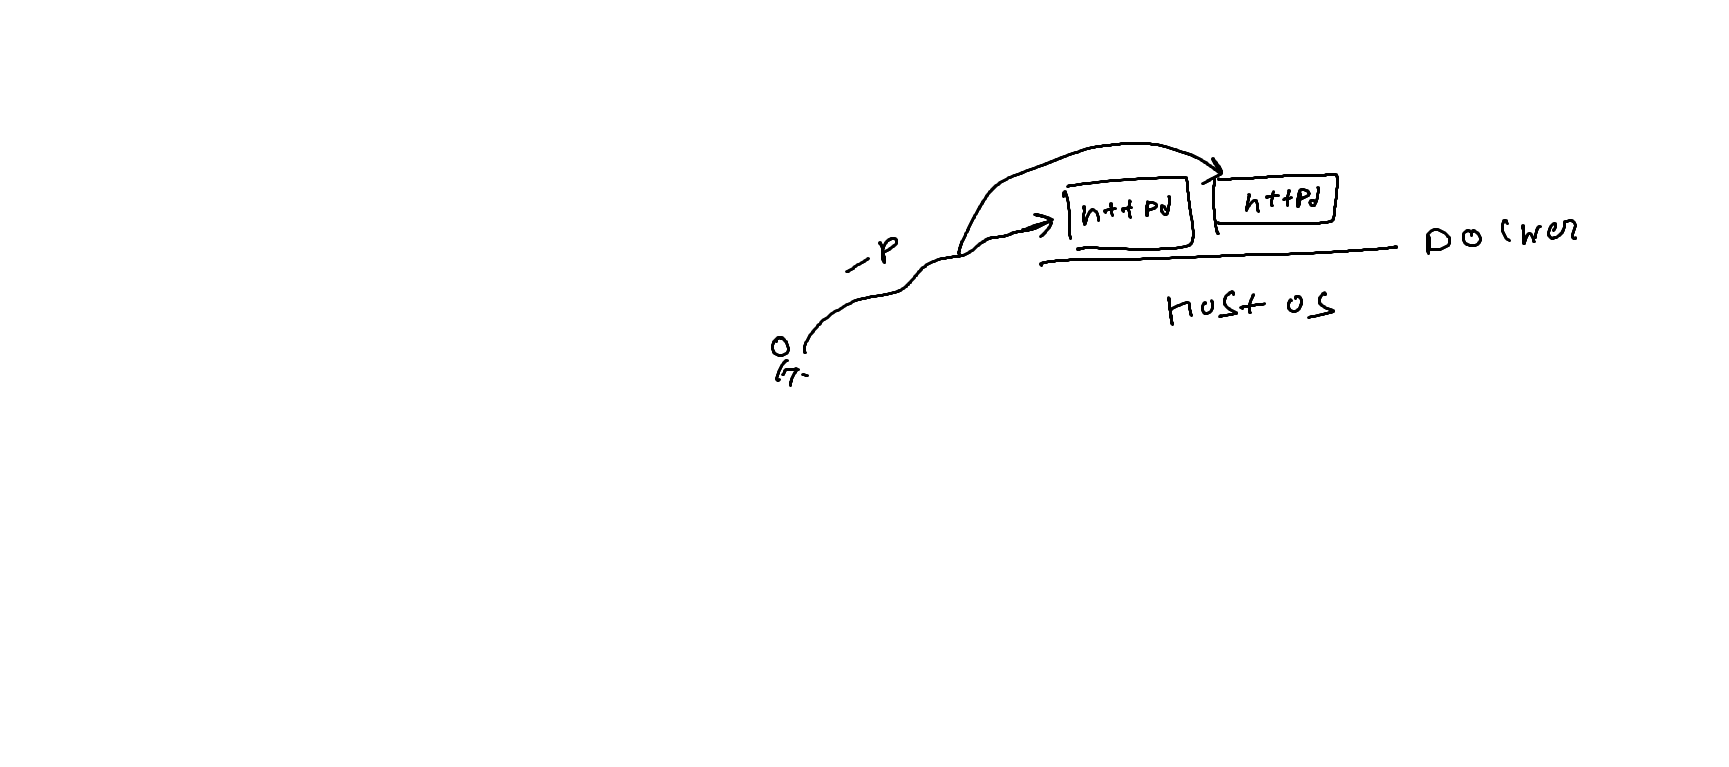 httpd httpd
-P
Docker
Host OS